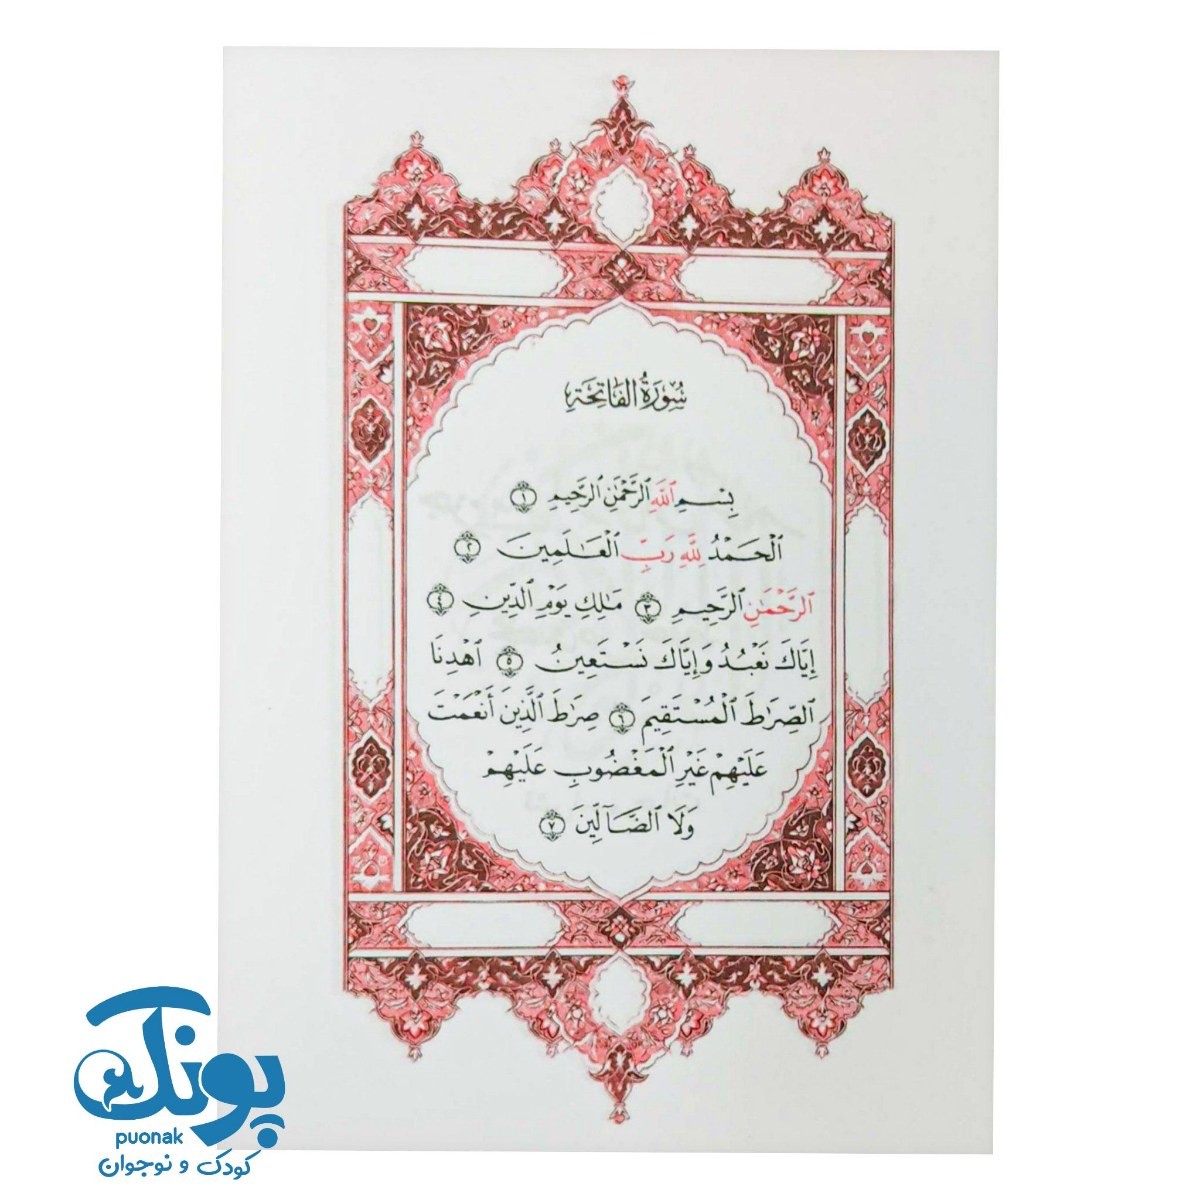 سُورَةُ الفَاتِحَةِ
بِسْمِ ٱللَّهِ ٱلرَّحْمَٰنِ ٱلرَّحِيمِ ١
ٱلْحَمْدُ لِلَّهِ رَبِّ ٱلْعَٰلَمِينَ ٢
ٱلرَّحْمَٰنِ ٱلرَّحِيمِ ٣ مَٰلِكِ يَوْمِ ٱلدِّينِ ٤
إِيَّاكَ نَعْبُدُ وَإِيَّاكَ نَسْتَعِينُ ٥ ٱهْدِنَا
ٱلصِّرَٰطَ ٱلْمُسْتَقِيمَ ٦ صِرَٰطَ ٱلَّذِينَ أَنْعَمْتَ
عَلَيْهِمْ غَيْرِ ٱلْمَغْضُوبِ عَلَيْهِمْ
وَلَا ٱلضَّآلِّينَ ٧
پونک
puonak
کودک و نوجوان